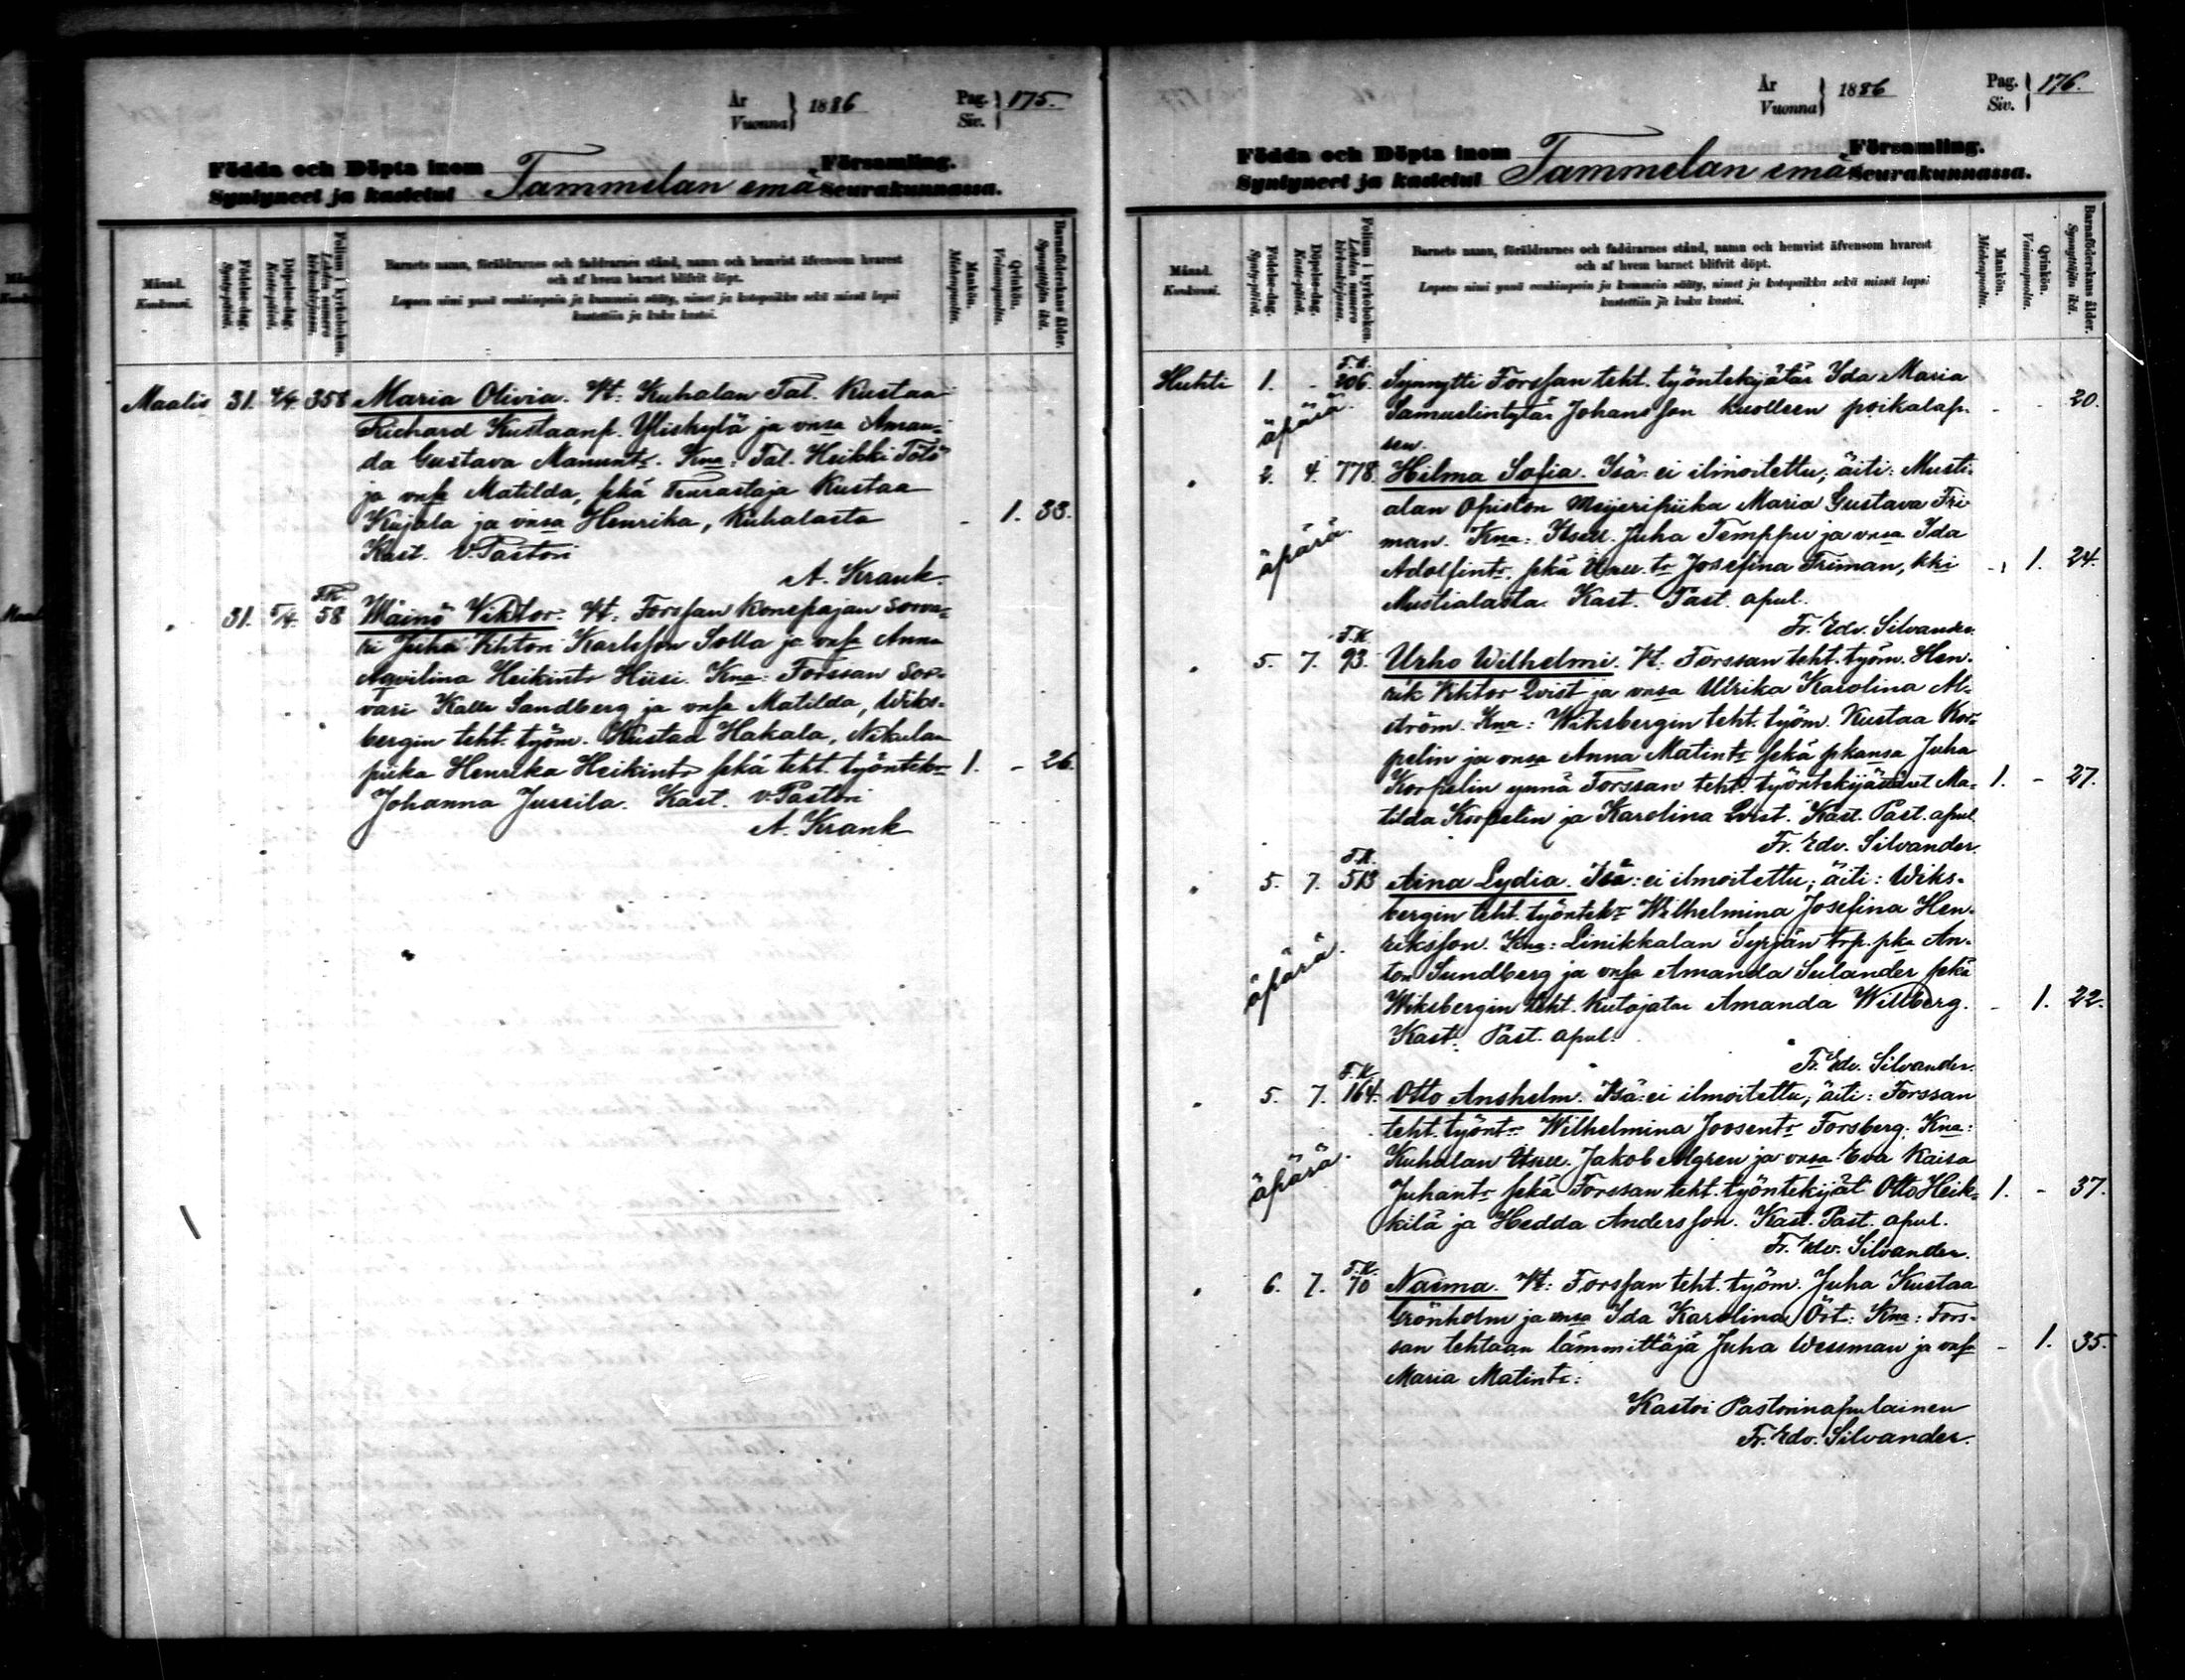 År
Vuonna } 1886
Pag.
Siv. } 175.
Födda och Döpta inom Församling.
Syntyneet ja kastetut Tammelan emä Seurakunnassa.
Månad.
Kuukausi.
Födelse-dag.
Synty-päivä.
Döpelse-dag.
Kaste-päivä.
Folium i kyrkoboken.
Lehden numero kirkonkirjassa.
Barnets namn, föräldrarnes och faddrarnes stånd, namn och hemvist äfvensom hvarest
och af hvem barnet blifvit döpt.
Lapsen nimi ynnä vanhimpain ja kummein sääty, nimet ja kotopaikka sekä missä lapsi
kastettiin ja kuka kastoi.
Mankön.
Miehenpuolta.
Qvinkön.
Vaimonpuolta.
Barnaföderskans ålder.
Synnyttäjän ikä.
Maalis 31. 4/4. 358 Maria Olivia. Vt: Kuhalan Tal. Kustaa
Richard Kustaanp. Yliskylä ja vnsa Aman-
da Gustava Manuntr. Kna: Tal. Heikki Tölö
ja vnsa Matilda, sekä Teurastaja Kustaa
Kujala ja vnsa Henrika, Kuhalasta - 1. 33.
Kast. v. Pastori
A. Krank.
F.K.
" 31. 5/4. 58 Wäinö Viktor. Vt: Forssan Konepajan Sorva-
ri Juha Vihtori Karlsson Solla ja vnsa Anna
Aqvilina Heikintr Hiisi. Kna: Forssan Sor-
vari Kalle Sandberg ja vnsa Matilda, Wiks-
bergin teht. työm. Kustaa Hakala, Nikulan
piika Henrika Heikintr sekä teht. työntekr 1. - 26.
Johanna Jussila. Kast. v. Pastori
A. Krank
År
Vuonna } 1886
Pag.
Siv. } 176.
Födda och Döpta inom Församling.
Syntyneet ja kastetut Tammelan emä Seurakunnassa.
Månad.
Kuukausi.
Födelse-dag.
Synty-päivä.
Döpelse-dag.
Kaste-päivä.
Folium i kyrkoboken.
Lehden numero kirkonkirjassa.
Barnets namn, föräldrarnes och faddrarnes stånd, namn och hemvist äfvensom hvarest
och af hvem barnet blifvit döpt.
Lapsen nimi ynnä vanhimpain ja kummein sääty, nimet ja kotopaikka sekä missä lapsi
kastettiin ja kuka kastoi.
Mankön.
Miehenpuolta.
Qvinkön.
Vaimonpuolta.
Barnaföderskans ålder.
Synnyttäjän ikä.
F.K.
Huhti 1. - 206. Synnytti Forssan teht. työntekijätär Ida Maria
äpärä. Samuelintytär Johansson kuolleen poikalap- - - 20.
sen.
" 2. 4. 778. Hilma Sofia. Isä: ei ilmoitettu; äiti: Musti-
alan Opiston Meijeripiika Maria Gustava Fri-
äpärä. man. Kna: Itsell. Juha Temppu ja vnsa Ida
Adolfintr. sekä Itsell. tr Josefina Friman, kki - 1. 24.
Mustialasta. Kast. Past. apul.
Fr. Edv. Silvander.
F.K.
" 5. 7. 93. Urho Wilhelmi. Vt: Forssan teht. työm. Hen-
rik Viktor Qvist ja vnsa Ulrika Karolina Al-
ström. Kna: Wiksbergin teht. työm. Kustaa Kor-
pelin ja vnsa Anna Matintr sekä pkansa Juha
Korpelin ynnä Forssan teht. työntekijättäret Ma- 1. - 27.
tilda Korpelin ja Karolina Qvist. Kast. Past. apul.
Fr. Edv. Silvander.
F.K.
" 5. 7. 513 Aina Lydia. Isä: ei ilmoitettu; äiti: Wiks-
bergin teht. työntekr Wilhelmina Josefina Hen-
äpärä. riksson. Kna: Linikkalan Syrjän trp. pka An-
ton Sundberg ja vnsa Amanda Sulander sekä
Wiksbergin teht. kutojatar Amanda Willberg. - 1. 22.
Kast. Past. apul.
Fr. Edv. Silvander.
F.K.
" 5. 7. 164. Otto Anshelm. Isä: ei ilmoitettu; äiti: Forssan
teht. työntr Wilhelmina Joosentr Forsberg. Kna:
äpärä. Kuhalan Itsell. Jakob Algren ja vnsa Eva Kaisa
Juhantr sekä Forssan teht. työntekijät Otto Heik- 1. - 37.
kilä ja Hedda Andersson. Kast. Past. apul.
Fr. Edv. Silvander.
F.K.
" 6. 7. 70 Naema. Vt: Forssan teht. työm. Juha Kustaa
Grönholm ja vnsa Ida Karolina Öst. Kna: Fors-
san tehtaan lämmittäjä Juha Wessman ja vnsa - 1. 35.
Maria Matintr:
Kastoi Pastorinapulainen
Fr. Edv. Silvander.